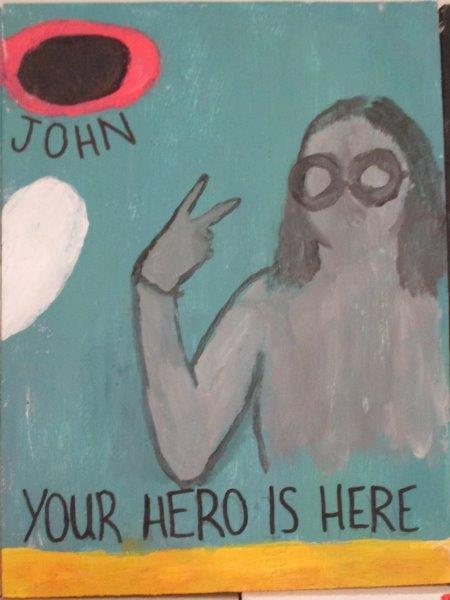 JOHN
YOUR HERO IS HERE